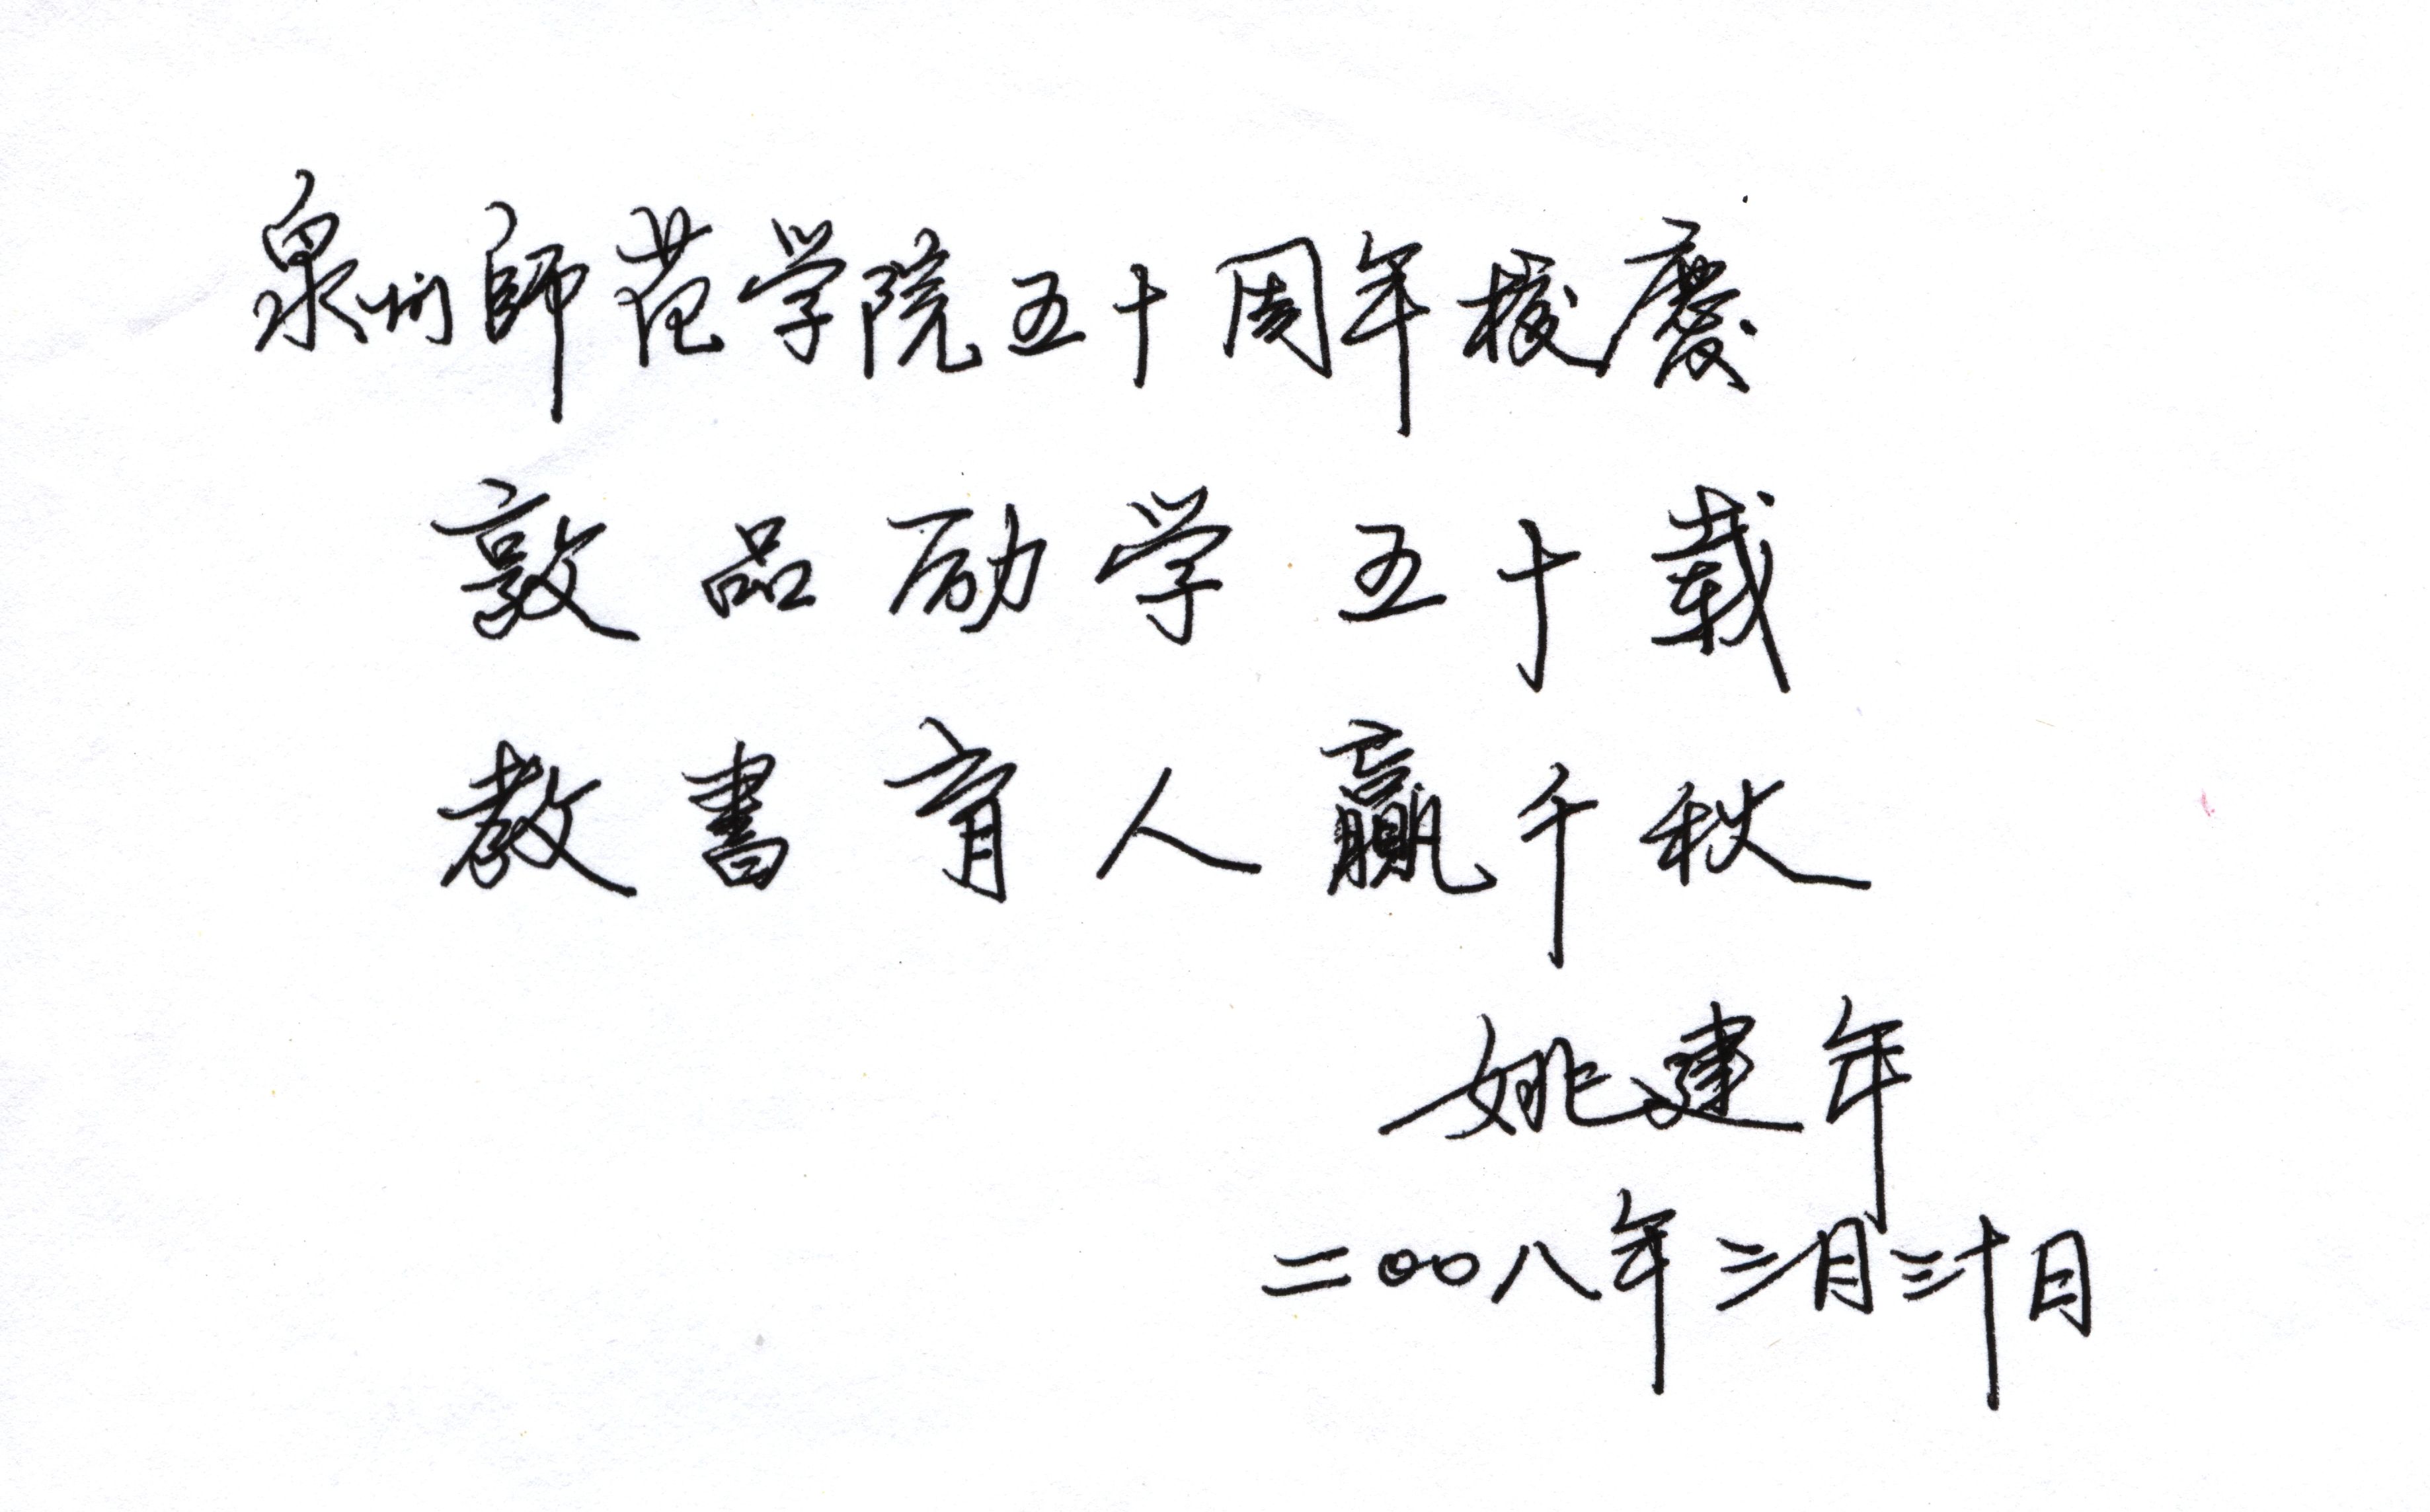 泉州師范学院五十周年校慶
敦品励学五十载
教書育人赢千秋
姚建年
二〇〇八年三月三十日